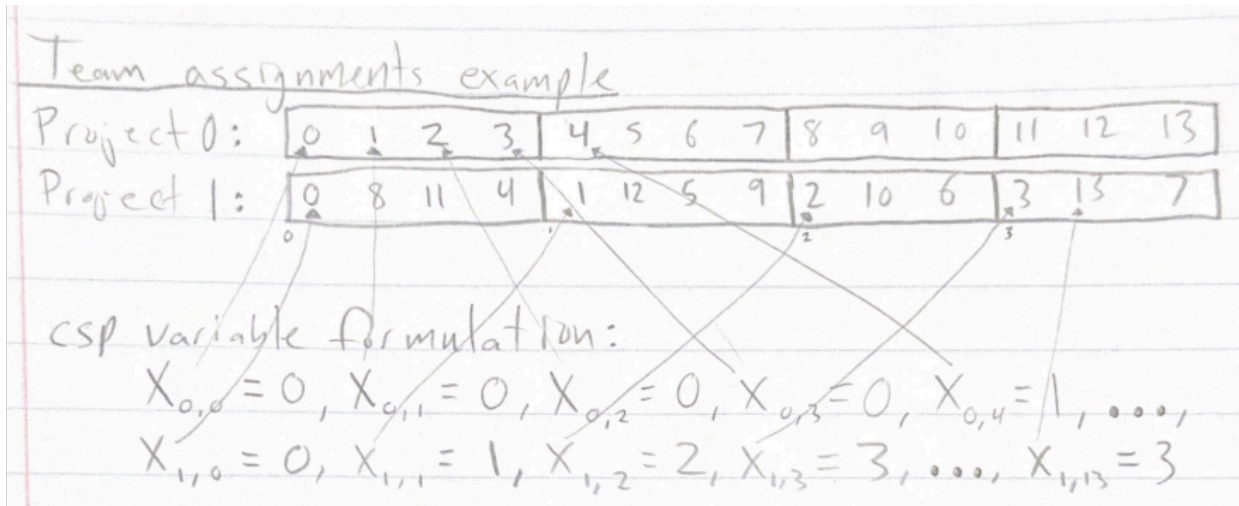 Team assignments example
Project 0: 0 1 2 3 4 5 6 7 8 9 10 11 12 13
Project 1: 0 8 11 4 1 12 5 9 2 10 6 3 13 7
0 1 2 3
csp variable formulation:
X0,0 = 0, X0,1 = 0, X0,2 = 0, X0,3 = 0, X0,4 = 1, ...,
X1,0 = 0, X1,1 = 1, X1,2 = 2, X1,3 = 3, ..., X1,13 = 3